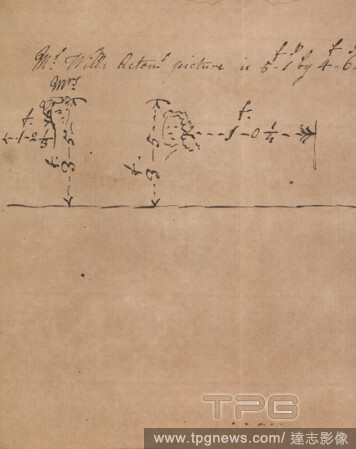 Mr. Wills Acton's picture is 5-1 by 4-6
Mrs
f.
f.
1-0 1/4
f.
3-5
f.
3-5
TPG
www.tpgnews.com/達志影像